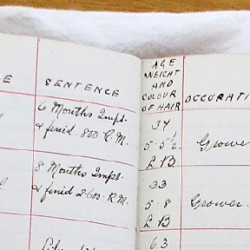 E
SENTENCE
AGE
HEIGHT
AND
COLOUR
OF HAIR
OCCUPATI
6 Months Impt.
& fined 800 R.M.
34
5-5½
L B
Grower
8 Months Impt.
& fined 2600 R.M.
33
5-8
L B
Grower
63